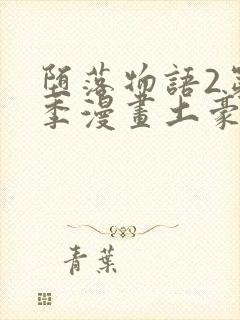 堕落物語2第
季漫畫土豪
青葉